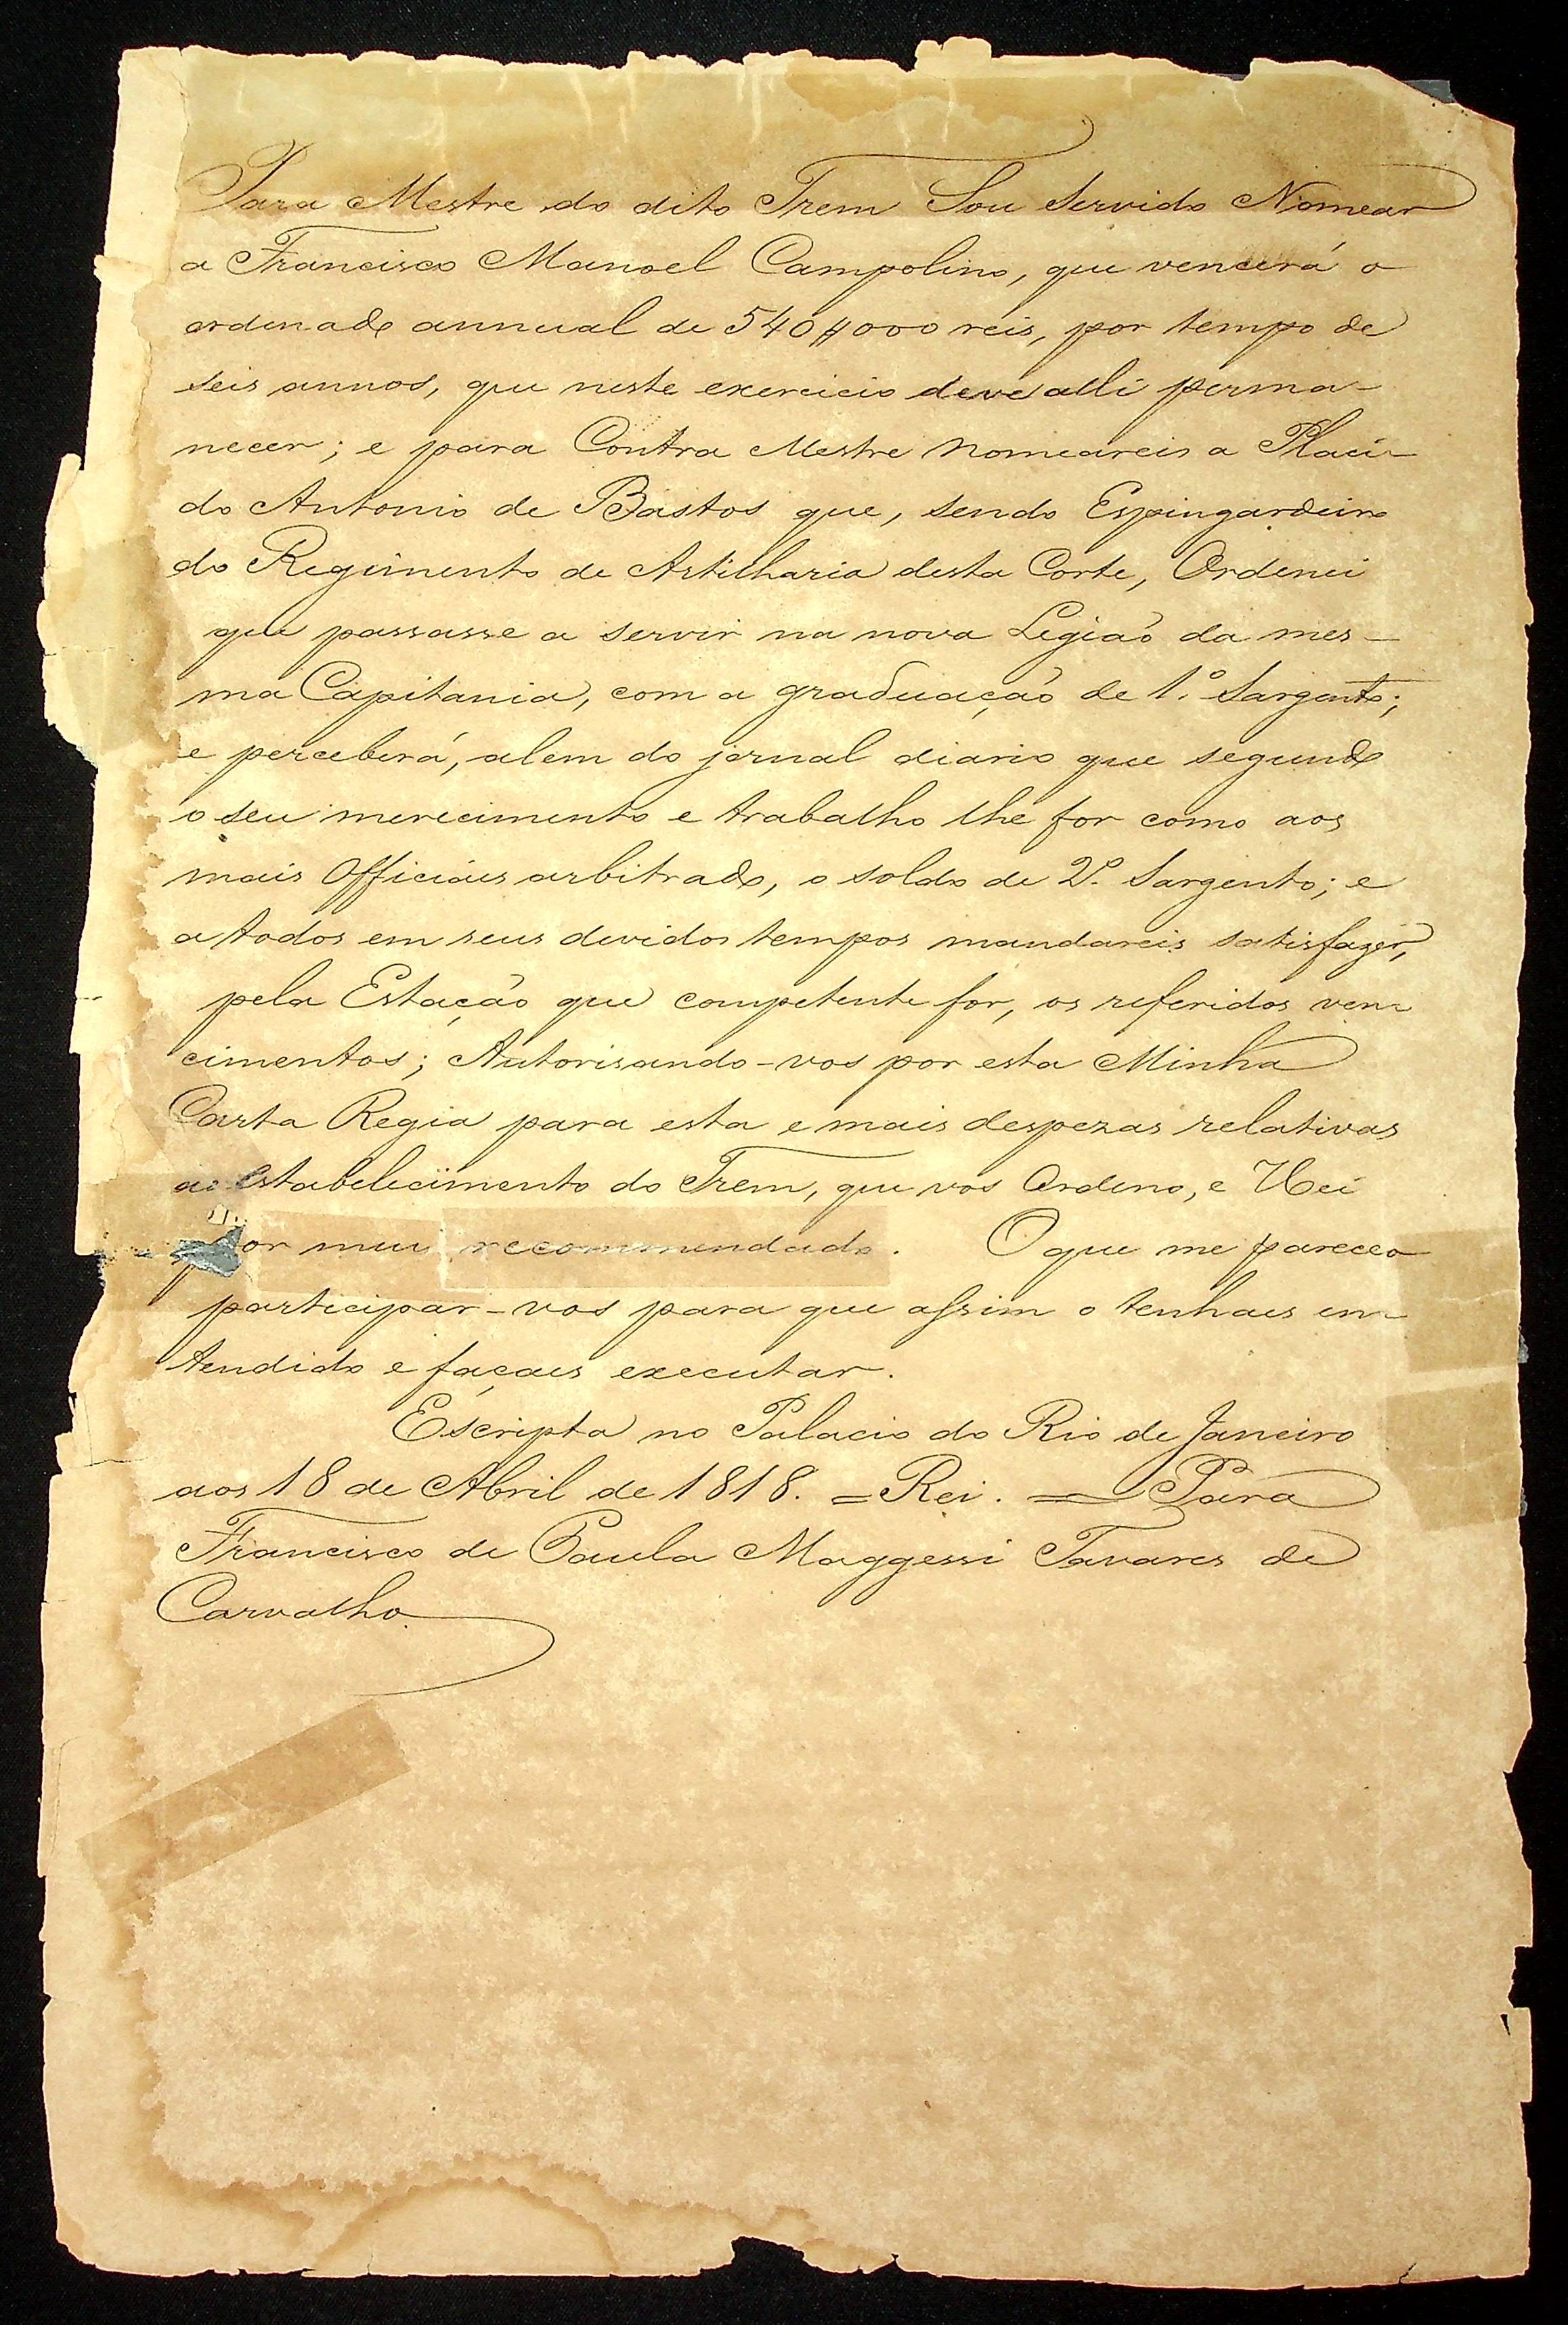 Para Mestre do dito Trem Sou Servido Nomear
a Francisco Manoel Campolino, que vencerá o
ordenado annual de 540$000 reis, por tempo de
seis annos, que neste exercicio deve alli perma-
necer; e para Contra Mestre nomeareis a Placi-
do Antonio de Bastos que, sendo Espingardeiro
do Regimento de Artilharia desta Corte, Ordenei
que passasse a servir na nova Legião da mes-
ma Capitania, com a graduação de 1.º Sargento;
e perceberá, alem do jornal diario que segundo
o seu merecimento e trabalho lhe for como aos
mais Officiáes arbitrado, o soldo de 2.º Sargento; e
a todos em seus devidos tempos mandareis satisfazer,
pela Estação que competente for, os referidos ven-
cimentos; Autorisando-vos por esta Minha
Carta Regia para esta e mais despezas relativas
ao Estabelecimento do Trem, que vos Ordeno, e Hei
por mui recommendado. O que me pareceo
participar-vos para que assim o tenhaes en-
tendido e façaes executar.
Escripta no Palacio do Rio de Janeiro
aos 18 de Abril de 1818. = Rei. = Para
Francisco de Paula Maggessi Tavares de
Carvalho